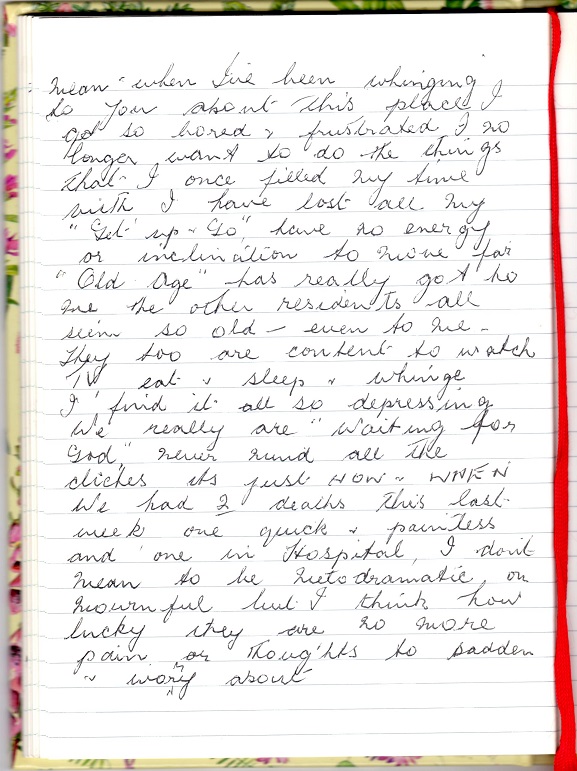 mean" when I've been whinging
to you about this place I
get so bored & frustrated I no
longer want to do the things
that I once filled my time
with I have lost all my
"Get up & Go", have no energy
or inclination to move far
"Old Age" has really got to
me the other residents all
seem so old - even to me -
They too are content to watch
TV eat & sleep & whinge
I find it all so depressing
We really are "Waiting for
God," never mind all the
cliches its just HOW & WHEN
We had 2 deaths this last
week one quick & painless
and one in Hospital, I don't
mean to be melodramatic, or
mournful but I think how
lucky they are no more
pain, or thoughts to sadden
& worry about